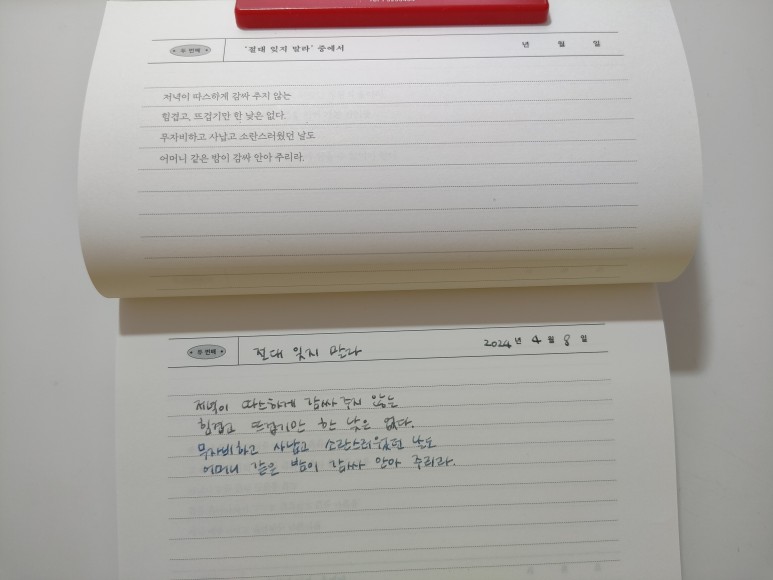 두 번째 '절대 잊지 말라' 중에서 년 월 일
저녁이 따스하게 감싸 주지 않는
힘겹고, 뜨겁기만 한 낮은 없다.
무자비하고 사납고 소란스러웠던 날도
어머니 같은 밤이 감싸 안아 주리라.
두 번째 절대 잊지 말라 2024년 4월 8일
저녁이 따스하게 감싸 주지 않는
힘겹고 뜨겁기만 한 낮은 없다.
무자비하고 사납고 소란스러웠던 날도
어머니 같은 밤이 감싸 안아 주리라.